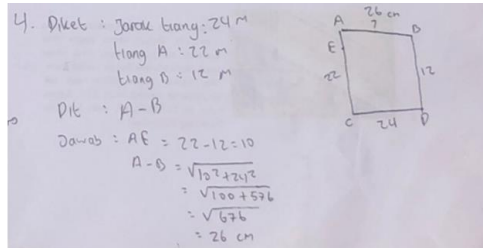 4. Diket : Jarak tiang : 24 m
tiang A : 22 m
tiang B : 12 m
Dit : A - B
Jawab : AE = 22 - 12 = 10
A - B = √10² + 24²
= √100 + 576
= √676
= 26 cm
26 cm
A ? B
E
22 12
C 24 D